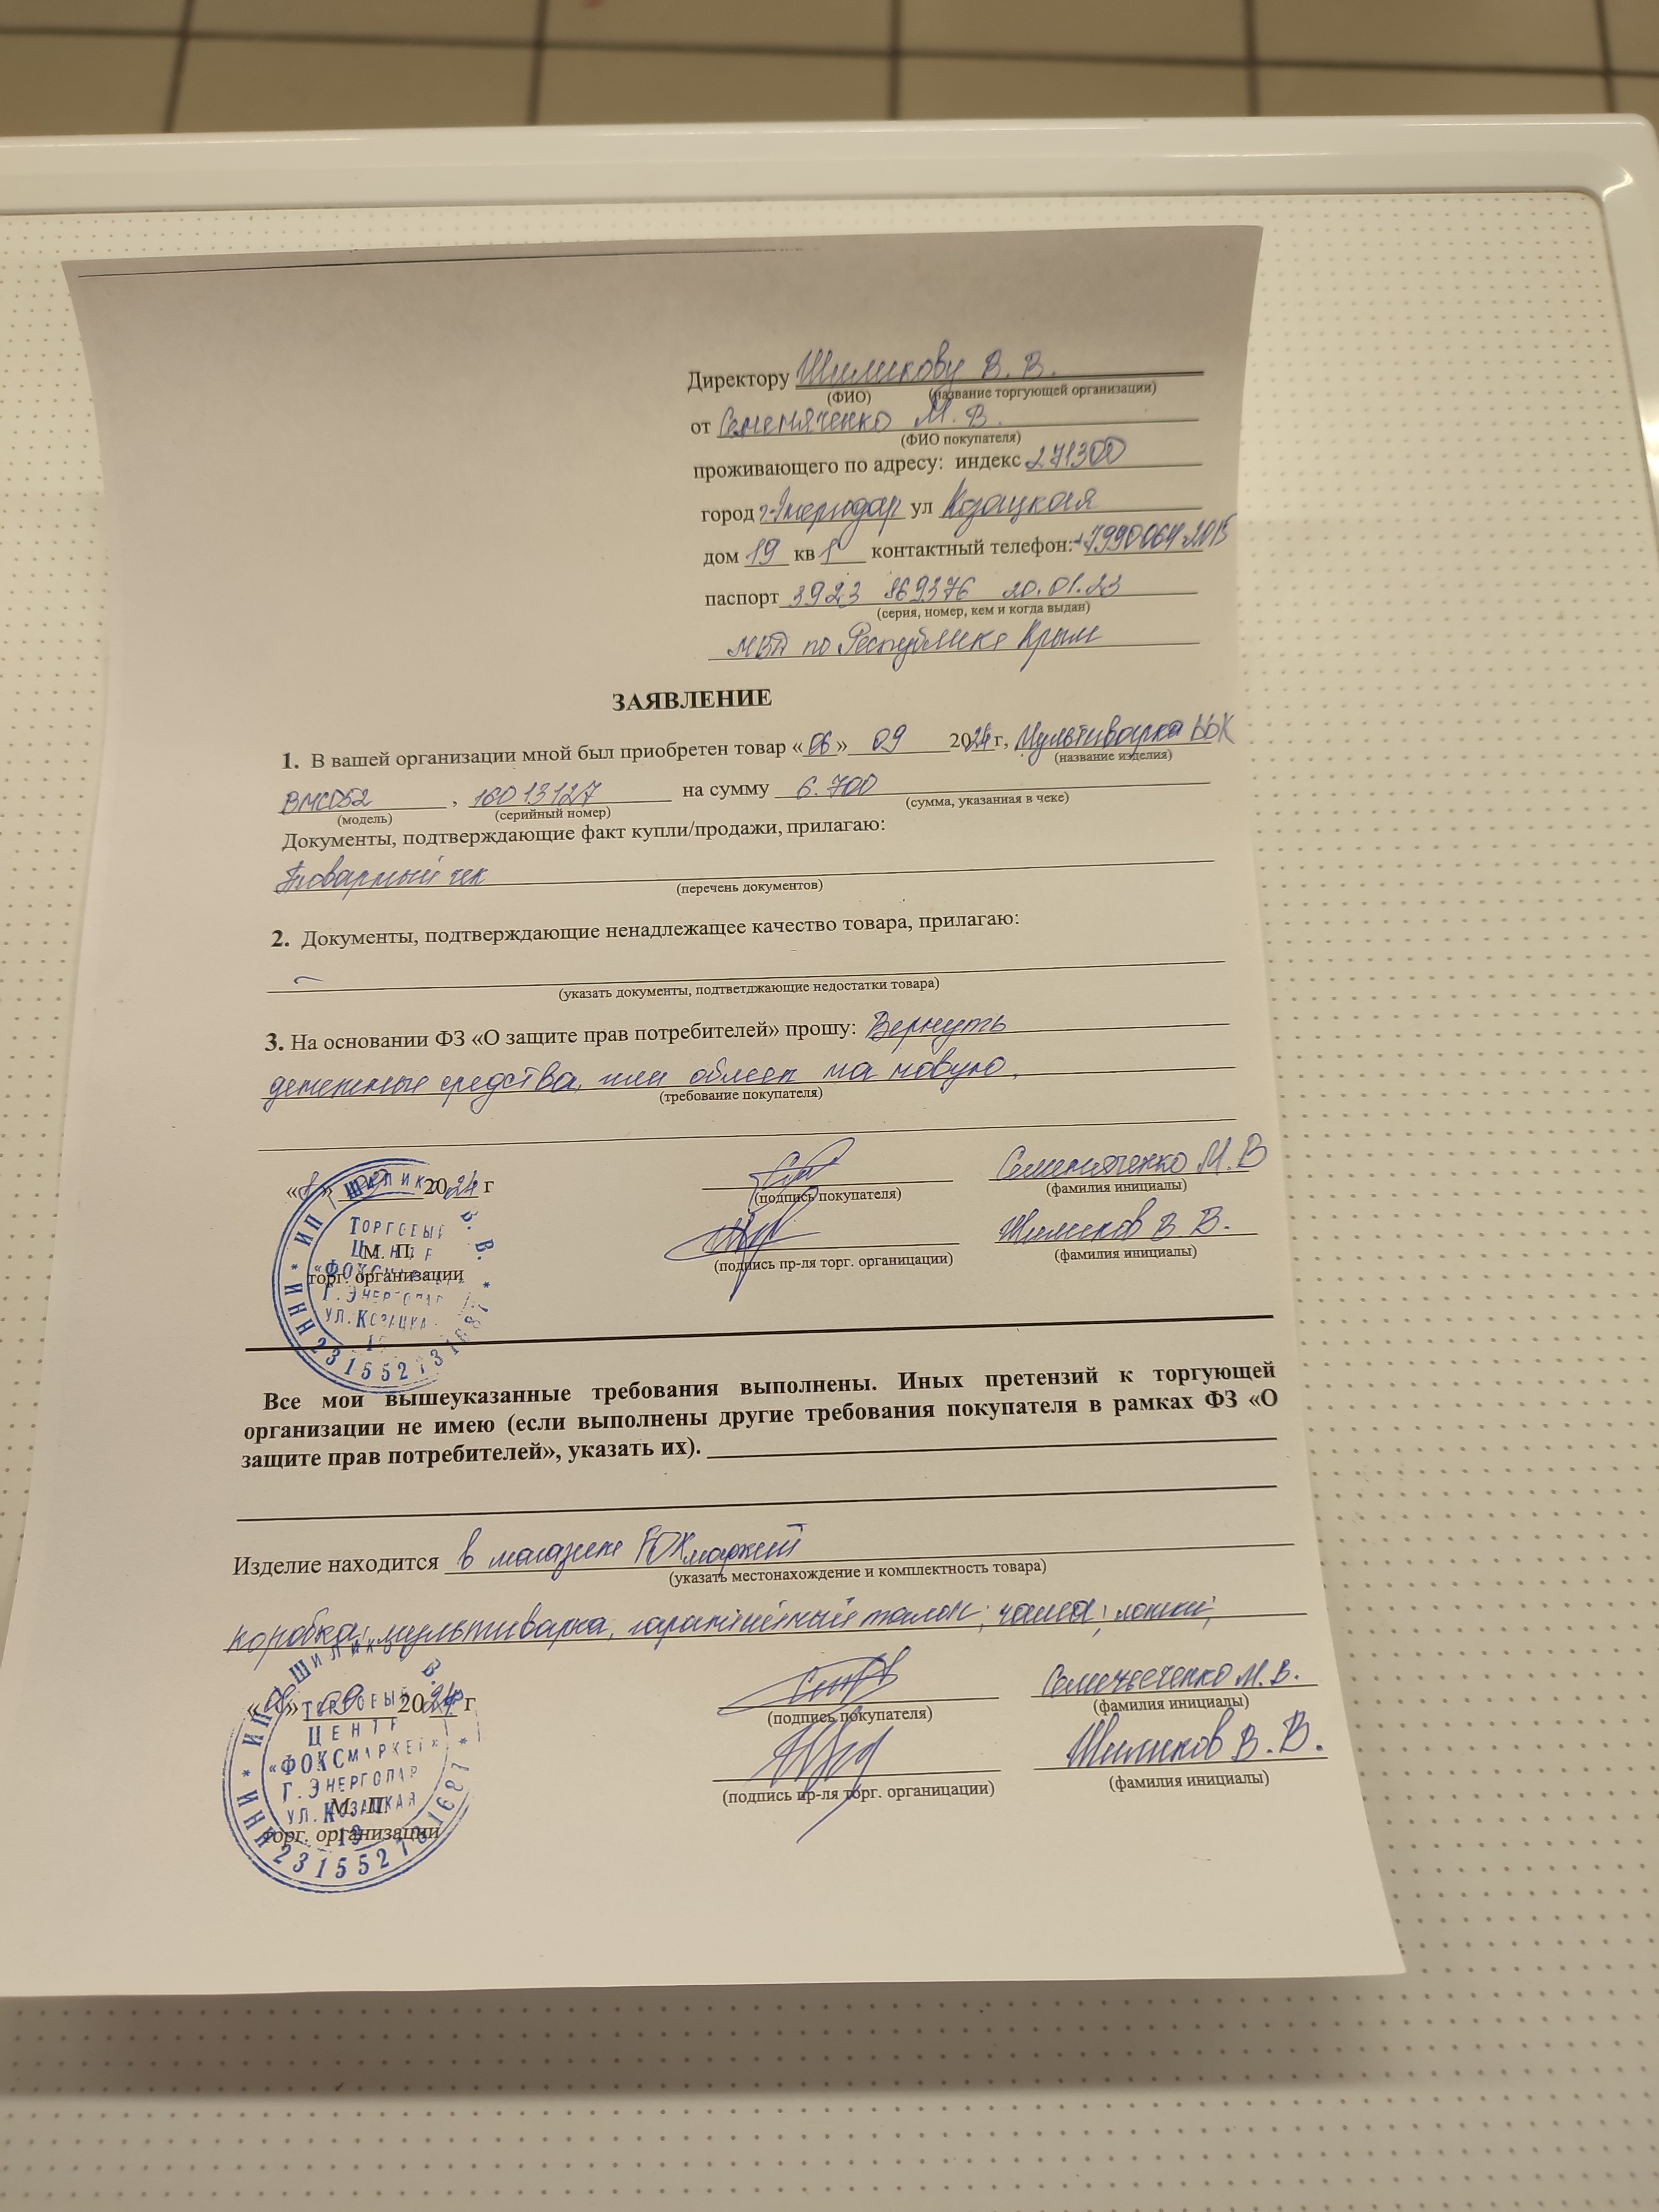 Директору Шиликову В. В.
(ФИО) (название торгующей организации)
от Семеняченко М. В.
(ФИО покупателя)
проживающего по адресу: индекс 271300
город г. Энергодар ул Козацкая
дом 19 кв 1 контактный телефон: +7990 064 2015
паспорт 3923 869376 20.01.23
(серия, номер, кем и когда выдан)
МВД по Республике Крым
ЗАЯВЛЕНИЕ
1. В вашей организации мной был приобретен товар «06» 09 2024 г, Мультиварка ББК
(название изделия)
ВМС052 , 16013127 на сумму 6.700
(модель) (серийный номер) (сумма, указанная в чеке)
Документы, подтверждающие факт купли/продажи, прилагаю:
Товарный чек
(перечень документов)
2. Документы, подтверждающие ненадлежащее качество товара, прилагаю:
(указать документы, подтветджающие недостатки товара)
3. На основании ФЗ «О защите прав потребителей» прошу: Вернуть
денежные средства, или обмен на новую.
(требование покупателя)
« » 2024 г
(подпись покупателя) Семеняченко М. В
(фамилия инициалы)
(подпись пр-ля торг. органицации) Шиликов В. В.
(фамилия инициалы)
М. П.
торг. организации
* ИП ШИЛИКОВ В. В. * ИНН 231552731687
ТОРГОВЫЙ
ЦЕНТР
«ФОКСМАРКЕТ»
Г. ЭНЕРГОДАР
УЛ. КОЗАЦКАЯ
Все мои вышеуказанные требования выполнены. Иных претензий к торгующей
организации не имею (если выполнены другие требования покупателя в рамках ФЗ «О
защите прав потребителей», указать их).
Изделие находится в магазине ФОКсмаркет
(указать местонахождение и комплектность товара)
коробка; мультиварка, гарантийный талон; чаша; ложки;
« » 09 2024 г
(подпись покупателя) Семеняченко М. В.
(фамилия инициалы)
(подпись пр-ля торг. органицации) Шиликов В. В.
(фамилия инициалы)
М. П.
торг. организации
* ИП ШИЛИКОВ В. * ИНН 231552731687
ТОРГОВЫЙ
ЦЕНТР
«ФОКСМАРКЕТ»
Г. ЭНЕРГОДАР
УЛ. КОЗАЦКАЯ
19